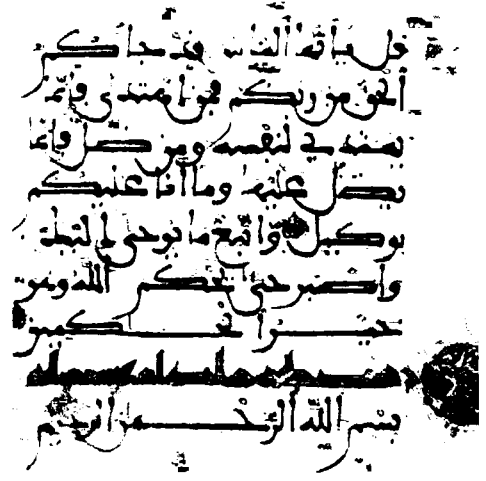 قل يا أيها الناس قد جاءكم
الحق من ربكم فمن اهتدى فإنما
يهتدي لنفسه ومن ضل فإنما
يضل عليها وما أنا عليكم
بوكيل واتبع ما يوحى إليك
واصبر حتى يحكم الله وهو
خير الحكمين
بسم الله الرحمن الرحيم